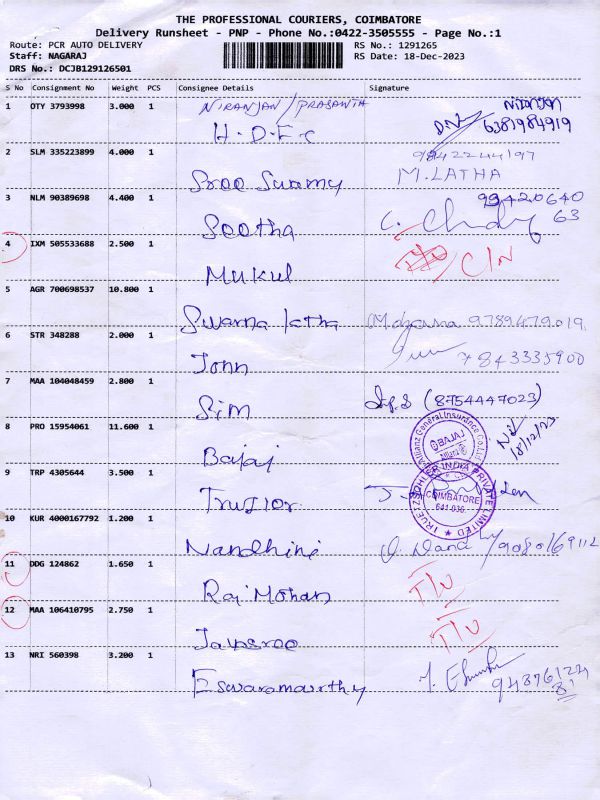 THE PROFESSIONAL COURIERS, COIMBATORE
Delivery Runsheet - PNP - Phone No.:0422-3505555 - Page No.:1
Route: PCR AUTO DELIVERY RS No.: 1291265
Staff: NAGARAJ RS Date: 18-Dec-2023
DRS No.: DCJB129126501
S No Consignment No Weight PCS Consignee Details Signature
1 OTY 3793998 3.000 1 NIRANJAN/PRASANTH Niranjan
H.D.F.C 6381984919
2 SLM 335223899 4.000 1 9842244197
Sree Swamy M.LATHA
3 NLM 90389698 4.400 1 99420640
Seetha 63
4 IXM 505533688 2.500 1 C/N
Mukul
5 AGR 700698537 10.800 1
Swarna latha 9789479019
6 STR 348288 2.000 1
John 7843335900
7 MAA 104048459 2.800 1
Sim (8754447023)
8 PRO 15954061 11.600 1 18/12/23
Bajaj
Allianz General Insurance Co. Ltd
BAJAJ
Allianz
9 TRP 4305644 3.500 1
Truzlor
TRUETZSCHLER INDIA PRIVATE LIMITED
COIMBATORE
641 036.
10 KUR 4000167792 1.200 1
Nandhini 9080169112
11 DDG 124862 1.650 1 T/U
Raj Mohan
12 MAA 106410795 2.750 1 T/U
Jayasree
13 NRI 560398 3.200 1
Eswaramourthy